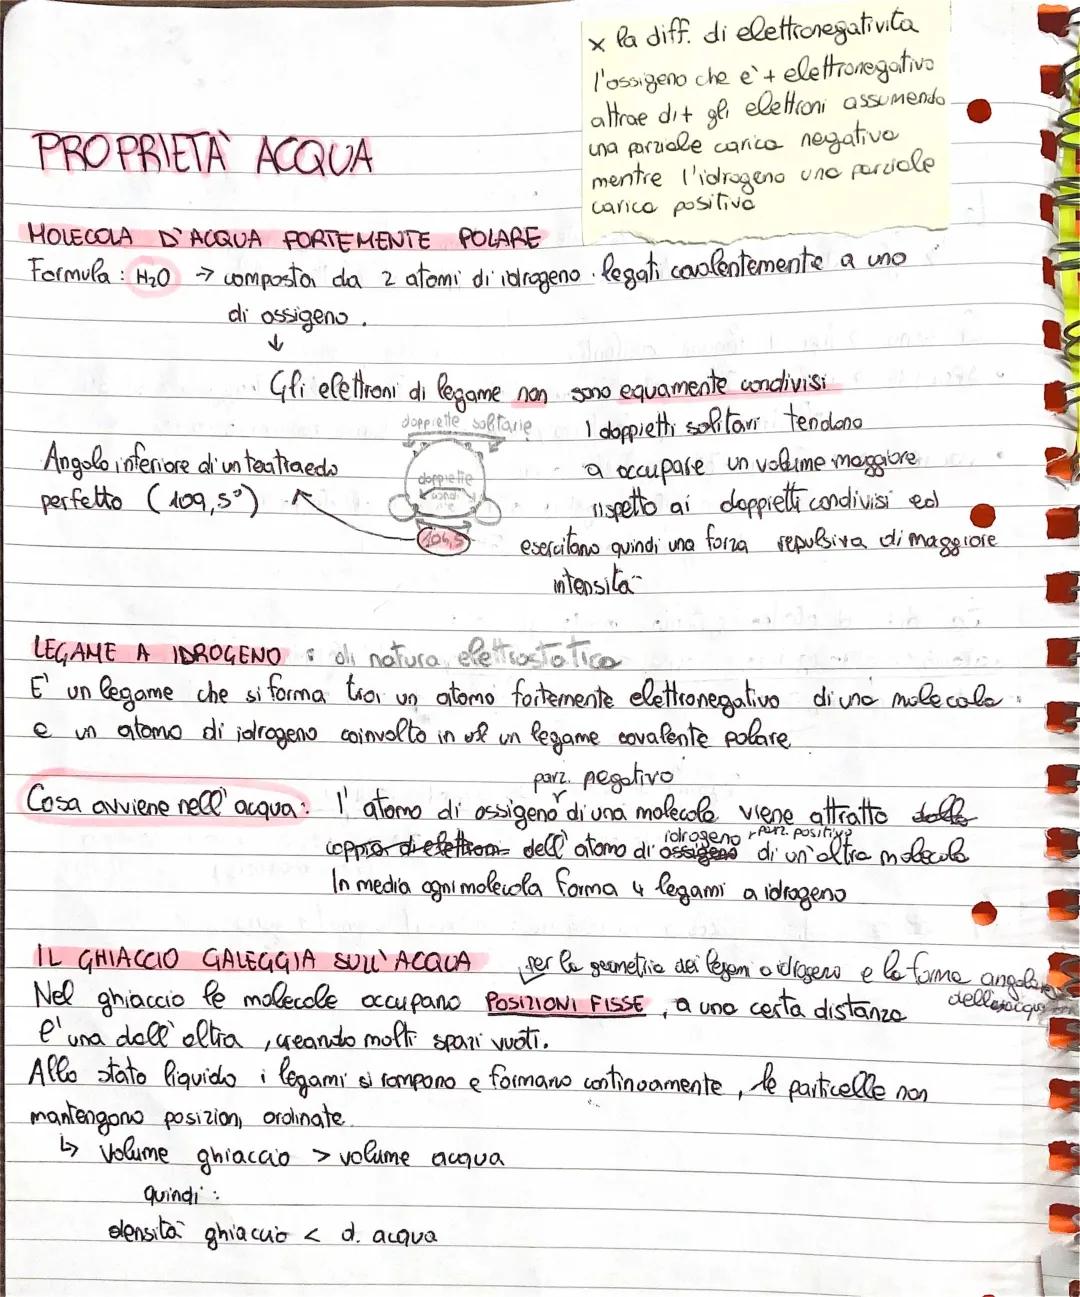 x la diff. di elettronegatività
l'ossigeno che e' + elettronegativo
attrae di + gli elettroni assumendo
una parziale carica negativa
mentre l'idrogeno una parziale
carica positiva
PROPRIETÀ ACQUA
MOLECOLA D'ACQUA FORTEMENTE POLARE
Formula : H₂O → composta da 2 atomi di idrogeno legati covalentemente a uno
di ossigeno.
↓
Gli elettroni di legame non sono equamente condivisi
doppiette solitarie
doppiette
condivise
104,5
Angolo inferiore di un teatraedo
perfetto (109,5°)
I doppietti solitari tendono
a occupare un volume maggiore
rispetto ai doppietti condivisi ed
esercitano quindi una forza repulsiva di maggiore
intensità
LEGAME A IDROGENO : di natura elettrostatica
E' un legame che si forma tra un atomo fortemente elettronegativo di una molecola
e un atomo di idrogeno coinvolto in un legame covalente polare.
parz. negativo
Cosa avviene nell'acqua: l'atomo di ossigeno di una molecola viene attratto dalla
idrogeno parz. positivo
coppia di elettroni dell'atomo di ossigeno di un'altra molecola
In media ogni molecola forma 4 legami a idrogeno
IL GHIACCIO GALEGGIA SULL'ACQUA per la geometria dei legami a idrogeno e la forma angolare
dell'acqua
Nel ghiaccio le molecole occupano POSIZIONI FISSE, a una certa distanza
l'una dall'altra, creando molti spazi vuoti.
Allo stato liquido i legami si rompono e formano continuamente, le particelle non
mantengono posizioni ordinate.
↳ volume ghiaccio > volume acqua
quindi :
densità ghiaccio < d. acqua